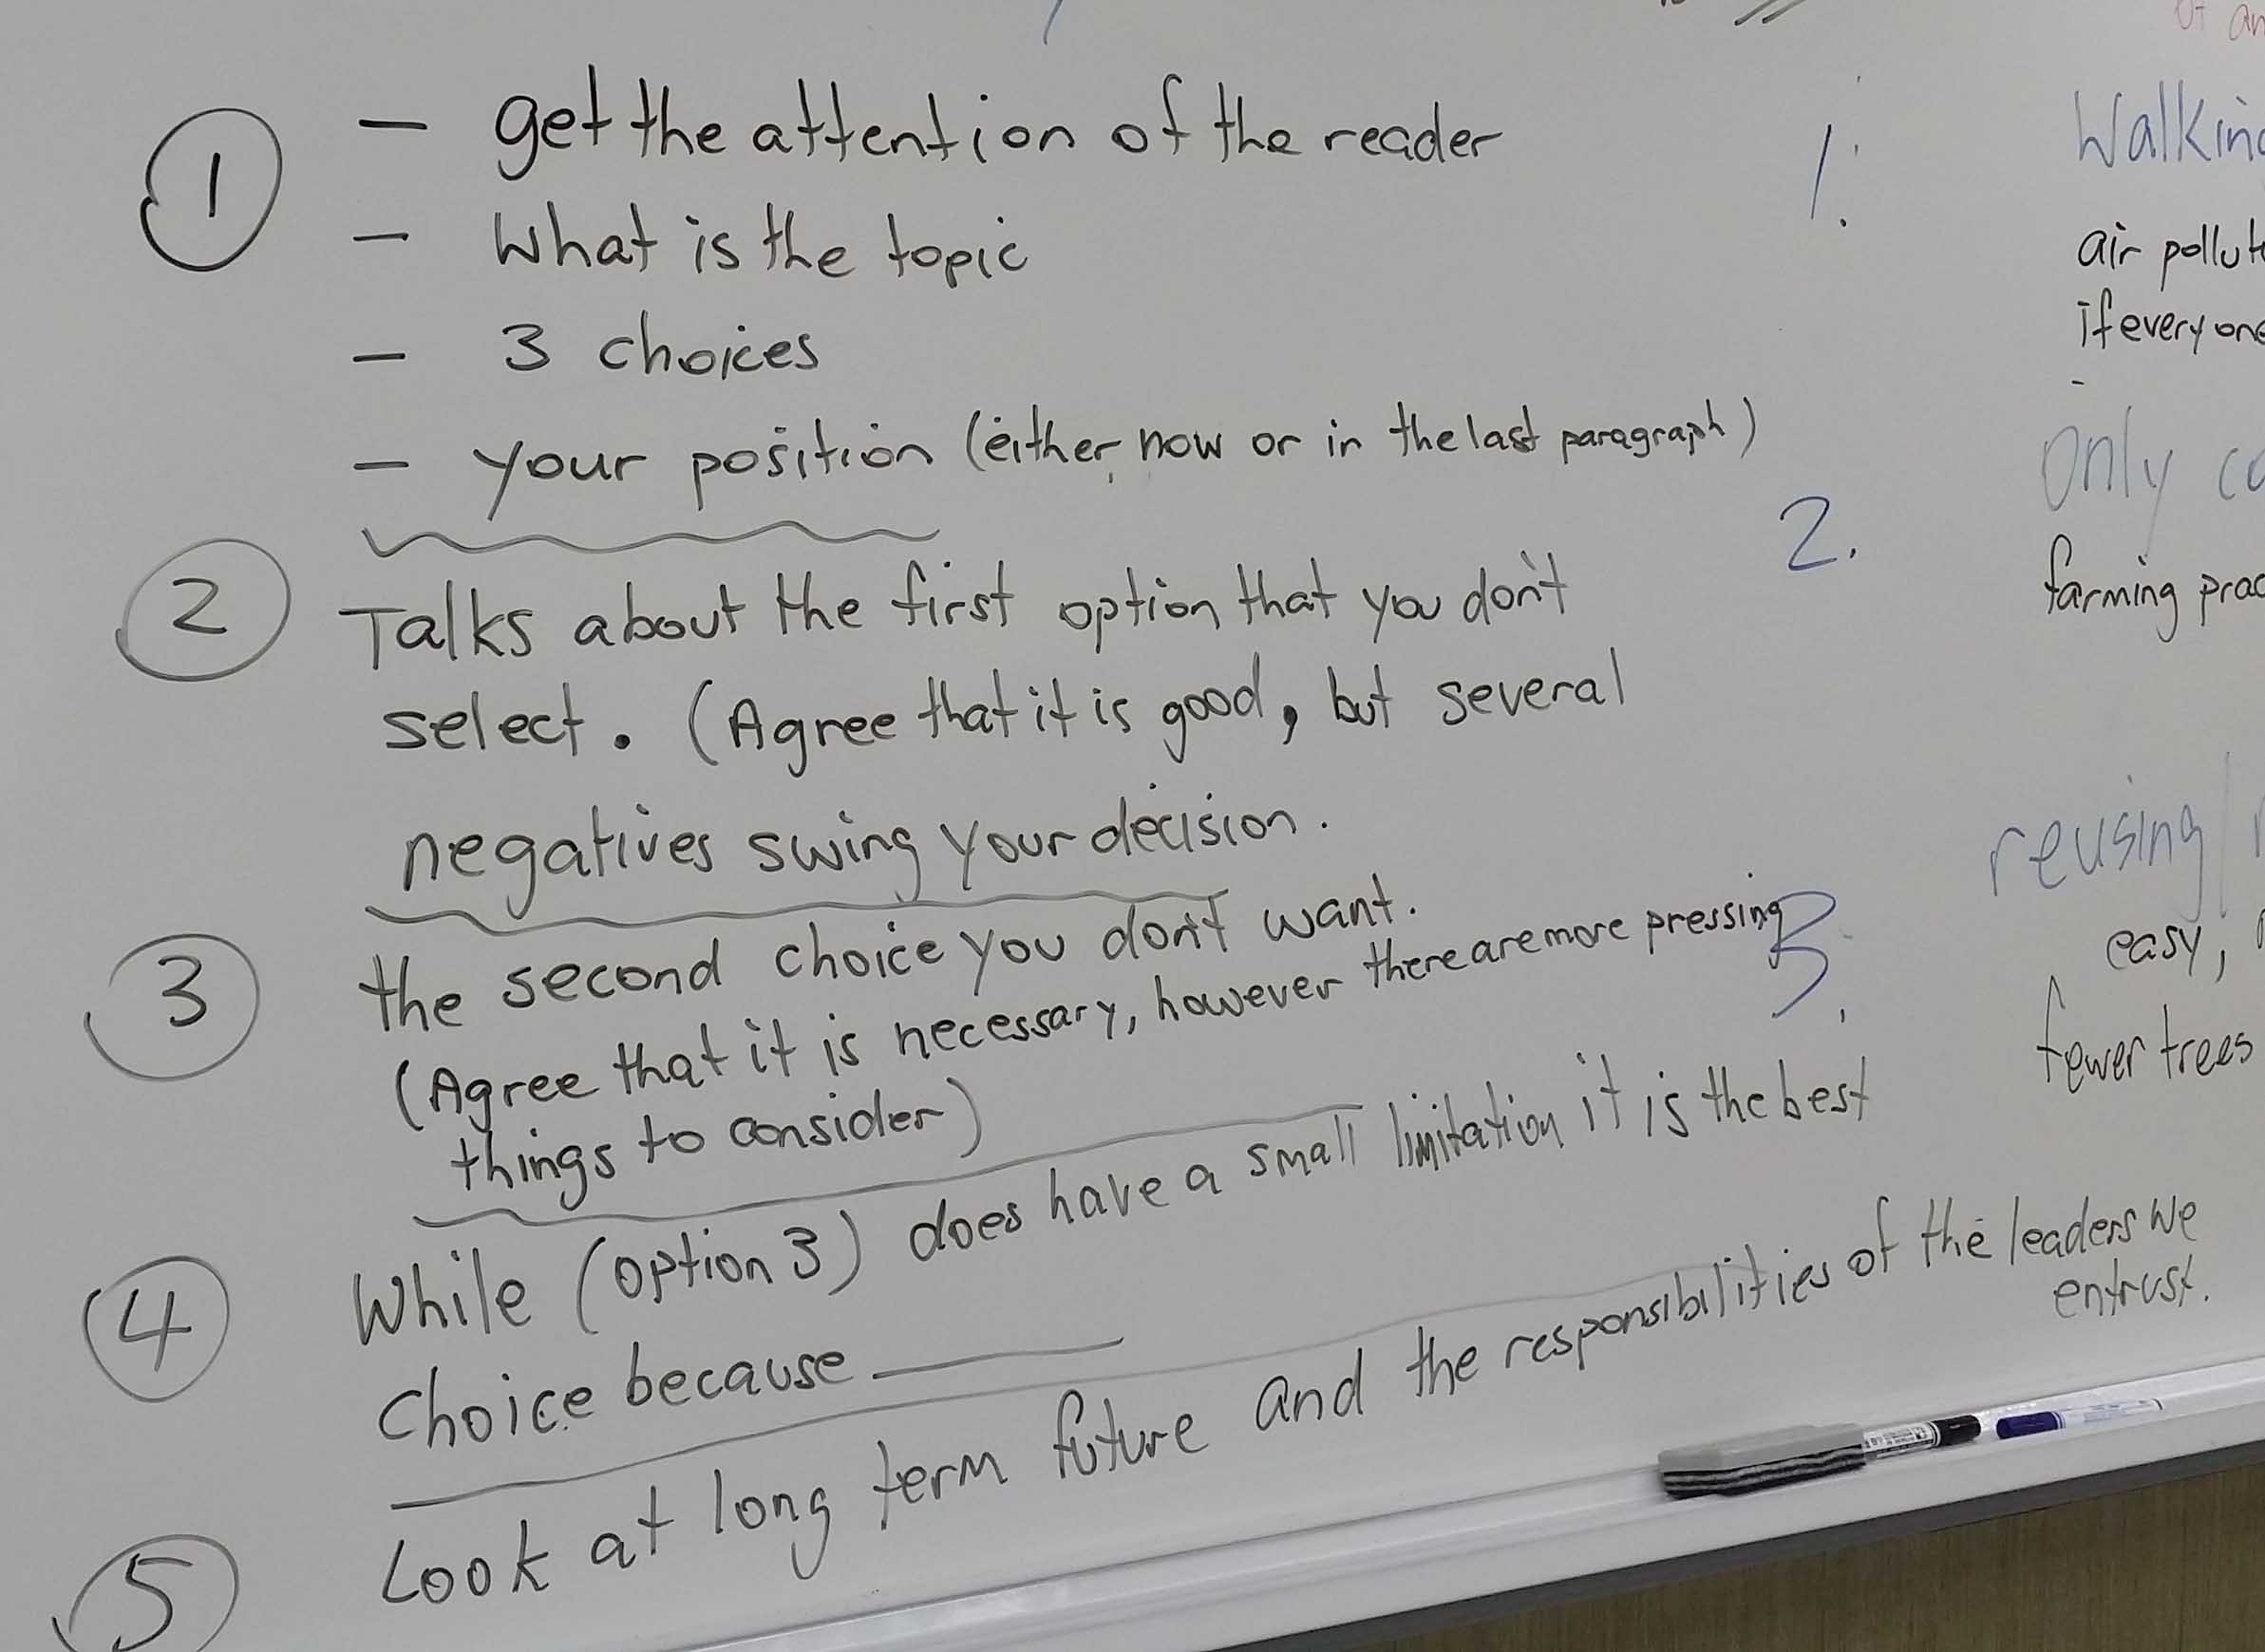 ①
— get the attention of the reader
— What is the topic
— 3 choices
— your position (either now or in the last paragraph)
② Talks about the first option that you don't
select. (Agree that it is good, but several
negatives swing your decision.
③ the second choice you don't want.
(Agree that it is necessary, however there are more pressing
things to consider)
④ While (option 3) does have a small limitation it is the best
choice because ______
⑤ Look at long term future and the responsibilities of the leaders we
entrust.
1.
air
if every
2. Only
farming
3. reusing/
easy,
fewer trees